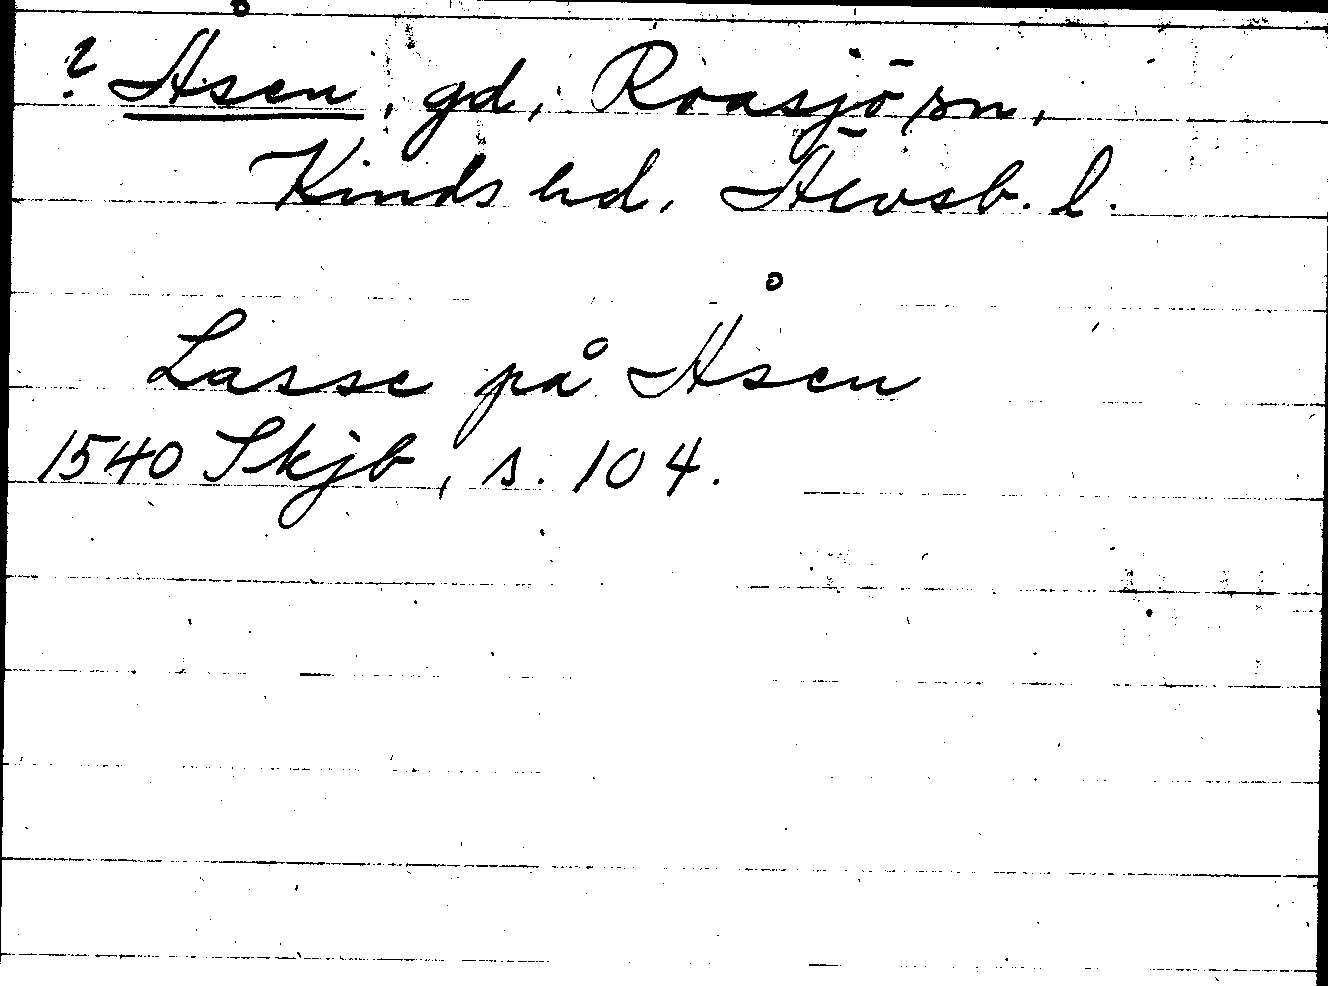 ? Åsen, gd, Roasjö sn,
Kinds hd. Älvsb. l.
Lasse på Åsen
1540 Skjb, s. 104.